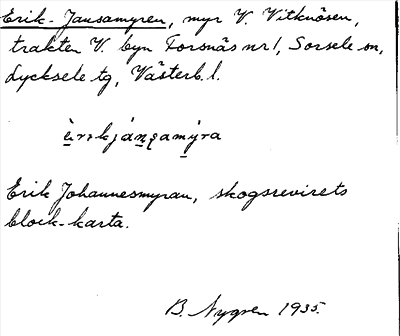 Erik-Jansamyren, myr V. Vitknösen,
trakten V. byn Forsnäs nr 1, Sorsele sn,
Lycksele tg, Västerb. l.
Erik Johannesmyran, skogsrevirets
block-karta.
B. Nygren 1935.